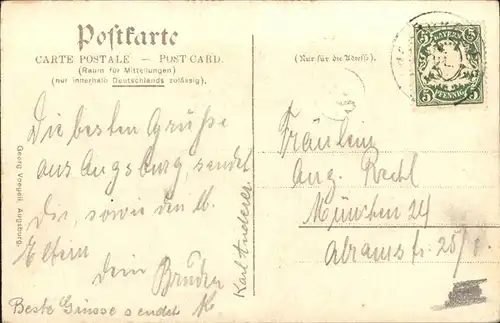 Postkarte
CARTE POSTALE — POST CARD.
(Raum für Mitteilungen)
(nur innerhalb Deutschlands zulässig).
(Nur für die Adresse).
BAYERN
5 5
5 PFENNIG 5
Georg Voegeli, Augsburg.
Die besten Grüße
aus Augsburg, sendet
Dir, sowie den lb.
Eltern
dein Bruder
Karl Anderer.
Beste Grüsse sendet
Fräulein
Aug. Rechl
München 24
25/1.